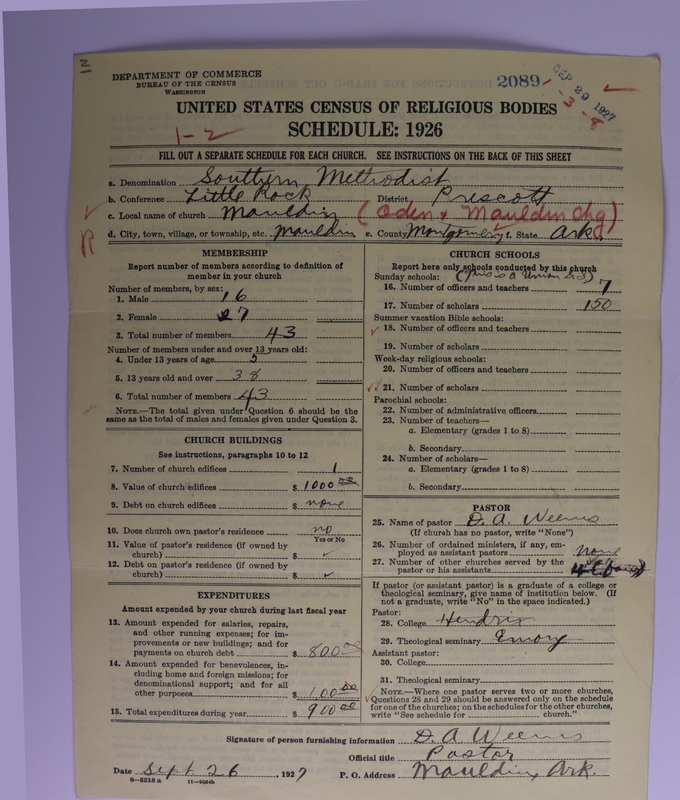 DEPARTMENT OF COMMERCE
BUREAU OF THE CENSUS
WASHINGTON
2089
SEP 29 1927
-3-8
UNITED STATES CENSUS OF RELIGIOUS BODIES
1-2
SCHEDULE: 1926
FILL OUT A SEPARATE SCHEDULE FOR EACH CHURCH. SEE INSTRUCTIONS ON THE BACK OF THIS SHEET
a. Denomination Southern Methodist
b. Conference Little Rock District Prescott
c. Local name of church Mauldin (Oden & Mauldin Chg)
d. City, town, village, or township, etc. Mauldin e. County Montgomery f. State Ark.
R
MEMBERSHIP
Report number of members according to definition of
member in your church
Number of members, by sex:
1. Male 16
2. Female 27
3. Total number of members 43
Number of members under and over 13 years old:
4. Under 13 years of age 5
5. 13 years old and over 38
6. Total number of members 43
NOTE.—The total given under Question 6 should be the
same as the total of males and females given under Question 3.
CHURCH BUILDINGS
See instructions, paragraphs 10 to 12
7. Number of church edifices 1
8. Value of church edifices $ 1000 00
9. Debt on church edifices $ none
10. Does church own pastor's residence no
Yes or No
11. Value of pastor's residence (if owned by
church) $ ✓
12. Debt on pastor's residence (if owned by
church) $ ✓
EXPENDITURES
Amount expended by your church during last fiscal year
13. Amount expended for salaries, repairs,
and other running expenses; for im-
provements or new buildings; and for
payments on church debt $ 800 00
14. Amount expended for benevolences, in-
cluding home and foreign missions; for
denominational support; and for all
other purposes $ 100 00
15. Total expenditures during year $ 900 00
CHURCH SCHOOLS
Report here only schools conducted by this church
Sunday schools: (This is a Union S.S)
16. Number of officers and teachers 7
17. Number of scholars 150
Summer vacation Bible schools:
18. Number of officers and teachers
19. Number of scholars
Week-day religious schools:
20. Number of officers and teachers
21. Number of scholars
Parochial schools:
22. Number of administrative officers
23. Number of teachers—
a. Elementary (grades 1 to 8)
b. Secondary
24. Number of scholars—
a. Elementary (grades 1 to 8)
b. Secondary
PASTOR
25. Name of pastor D. A. Weems
(If church has no pastor, write "None")
26. Number of ordained ministers, if any, em-
ployed as assistant pastors None
27. Number of other churches served by the
pastor or his assistants 4
If pastor (or assistant pastor) is a graduate of a college or
theological seminary, give name of institution below. (If
not a graduate, write "No" in the space indicated.)
Pastor:
28. College Hendrix
29. Theological seminary Emory
Assistant pastor:
30. College
31. Theological seminary
NOTE.—Where one pastor serves two or more churches,
Questions 28 and 29 should be answered only on the schedule
for one of the churches; on the schedules for the other churches,
write "See schedule for church."
Signature of person furnishing information D. A Weems
Official title Pastor
Date Sept. 26, 1927 P. O. Address Mauldin, Ark.
8—5518 a 11—9084b